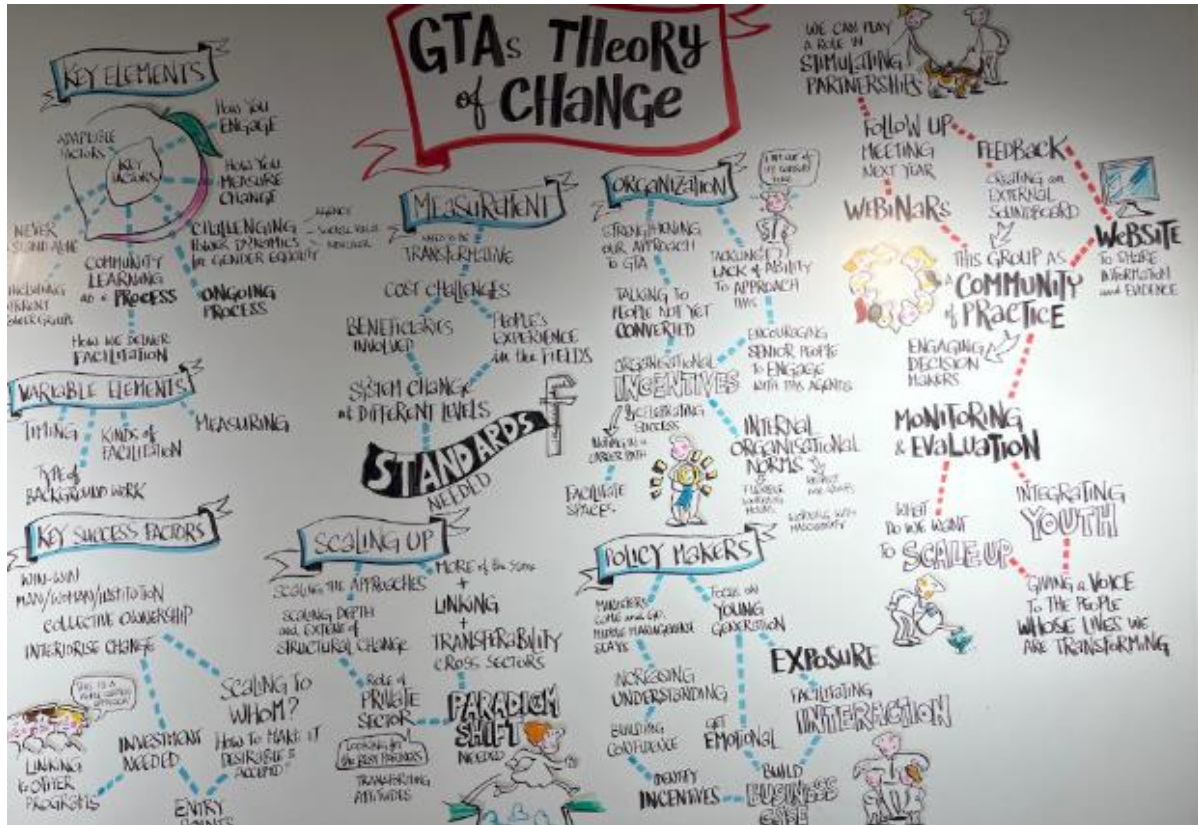 GTAs THEORY
of CHANGE
KEY ELEMENTS
ADAPTABLE
FACTORS
KEY
FACTORS
HOW YOU
ENGAGE
HOW YOU
MEASURE
CHANGE
CHALLENGING
POWER DYNAMICS
for GENDER EQUALITY
AGENCY
NEVER
STAND ALONE
COMMUNITY
LEARNING
as a PROCESS
ONGOING
PROCESS
HOW WE DELIVER
FACILITATION
VARIABLE ELEMENTS
TIMING
KINDS of
FACILITATION
MEASURING
TYPE of
BACKGROUND WORK
KEY SUCCESS FACTORS
WIN-WIN
MAN/WOMAN/INSTITUTION
COLLECTIVE OWNERSHIP
INTERIORISE CHANGE
SCALING TO
WHOM?
HOW TO MAKE IT
DESIRABLE &
ACCEPTED
THIS IS A
INVESTMENT
NEEDED
LINKING
to OTHER
PROGRAMS
ENTRY
POINTS
MEASUREMENT
NEED TO BE
TRANSFORMATIVE
COST CHALLENGES
BENEFICIARIES
INVOLVED
PEOPLE'S
EXPERIENCE
in the FIELDS
SYSTEM CHANGE
at DIFFERENT LEVELS
STANDARDS
NEEDED
SCALING UP
SCALING THE APPROACHES
MORE of the SAME
+
LINKING
+
TRANSFERABILITY
CROSS SECTORS
SCALING DEPTH
and EXTENT of
STRUCTURAL CHANGE
ROLE of
PRIVATE
SECTOR
LOOKING for
the BEST PARTNERS
TRANSFORMING
ATTITUDES
PARADIGM
SHIFT
NEEDED
ORGANIZATION
STRENGTHENING
OUR APPROACH
to GTA
TACKLING
LACK of ABILITY
TO APPROACH
THIS
TALKING TO
PEOPLE NOT YET
CONVERTED
ENCOURAGING
SENIOR PEOPLE
TO ENGAGE
WITH THIS AGENTS
ORGANISATIONAL
INCENTIVES
& CELEBRATING
SUCCESS
CAREER PATH
FACILITATE
SPACES
INTERNAL
ORGANISATIONAL
NORMS
FLEXIBLE
WORKING
HOURS
WORKING WITH
MASCULINITY
POLICY MAKERS
MINISTERS
COME and GO
MIDDLE MANAGEMENT
STAYS
FOCUS on
YOUNG
GENERATION
INCREASING
UNDERSTANDING
BUILDING
CONFIDENCE
GET
EMOTIONAL
IDENTIFY
INCENTIVES
BUILD
BUSINESS
CASE
EXPOSURE
FACILITATING
INTERACTION
WE CAN PLAY
A ROLE IN
STIMULATING
PARTNERSHIPS
FOLLOW UP
MEETING
NEXT YEAR
FEEDBACK
CREATING an
EXTERNAL
SOUNDBOARD
WEBINARS
WEBSITE
TO SHARE
INFORMATION
and EVIDENCE
THIS GROUP AS
a COMMUNITY
of PRACTICE
ENGAGING
DECISION
MAKERS
MONITORING
& EVALUATION
WHAT
DO WE WANT
TO SCALE UP
INTEGRATING
YOUTH
GIVING a VOICE
TO THE PEOPLE
WHOSE LIVES WE
ARE TRANSFORMING